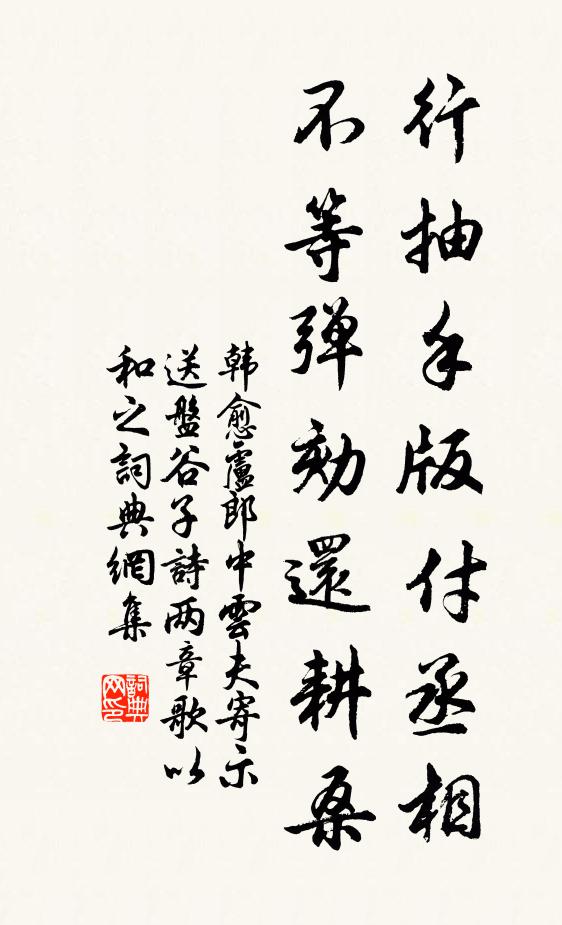 行抽手版付丞相
不等弹劾還耕桑
韩愈盧郎中雲夫寄示
送盤谷子詩两章歌以
和之詞典網集
詞典
网印